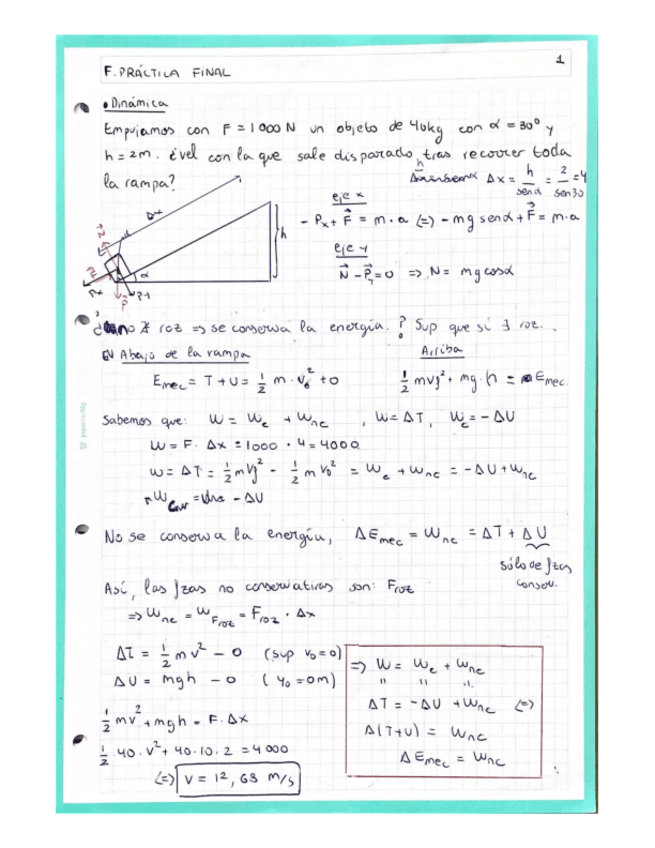 1
F. PRÁCTICA FINAL
• Dinámica
Empujamos con F = 1000 N un objeto de 40kg con α = 30º y
h = 2m. ¿vel con la que sale disparado tras recorrer toda
la rampa?
Δx = h / senα = 2 / sen30 = 4
eje x
- Px + F⃗ = m·a (=) - mg senα + F⃗ = m·a
eje y
N⃗ - P⃗y = 0 => N = mg cosα
Δx
h
α
P⃗
no ∄ roz => se conserva la energía.? Sup que sí ∃ roz.
EN Abajo de la rampa
Arriba
Emec = T + U = 1/2 m · v0² + 0
1/2 m vf² + mg·h = Emec.
Sabemos que: W = Wc + Wnc , W = ΔT, Wc = - ΔU
W = F · Δx = 1000 · 4 = 4000
W = ΔT = 1/2 m vf² - 1/2 m v0² = Wc + Wnc = - ΔU + Wnc
- ΔU
No se conserva la energía, ΔEmec = Wnc = ΔT + ΔU
sólo de fzas
conserv.
Así, las fzas no conservativas son: Froz
=> Wnc = WFroz = Froz · Δx
ΔT = 1/2 m v² - 0 (sup v0 = 0)
ΔU = mgh - 0 ( y0 = 0m)
1/2 m v² + mgh = F. Δx
1/2 · 40 · v² + 40 · 10 · 2 = 4000
(=) v = 12,63 m/s
=> W = Wc + Wnc
" " "
ΔT = - ΔU + Wnc (=)
Δ(T+U) = Wnc
Δ Emec = Wnc